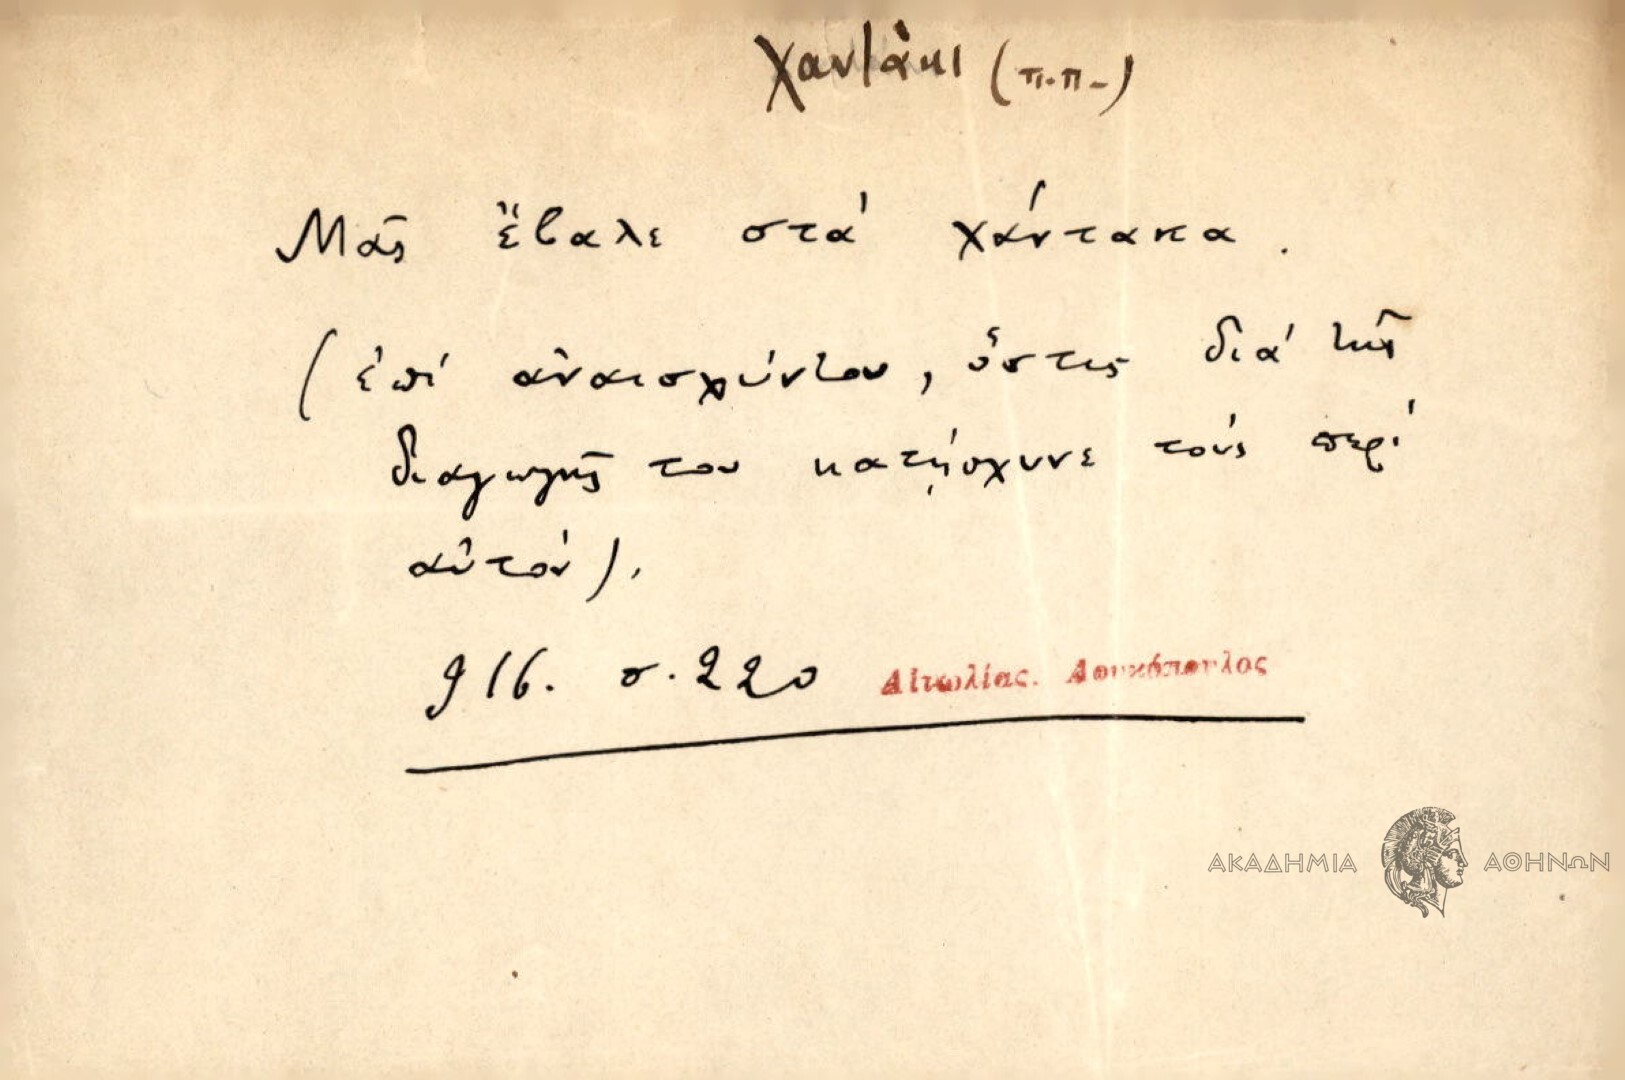 χαντάκι (π.π.)
Μᾶς ἔβαλε στά χάντακα.
(ἐπί ἀναισχύντου, ὅστις διά τῆς
διαγωγῆς του κατῄσχυνε τούς περί
αὐτόν).
916. σ. 220 Αἰτωλίας. Λουκόπουλος
ΑΚΑΔΗΜΙΑ ΑΘΗΝΩΝ